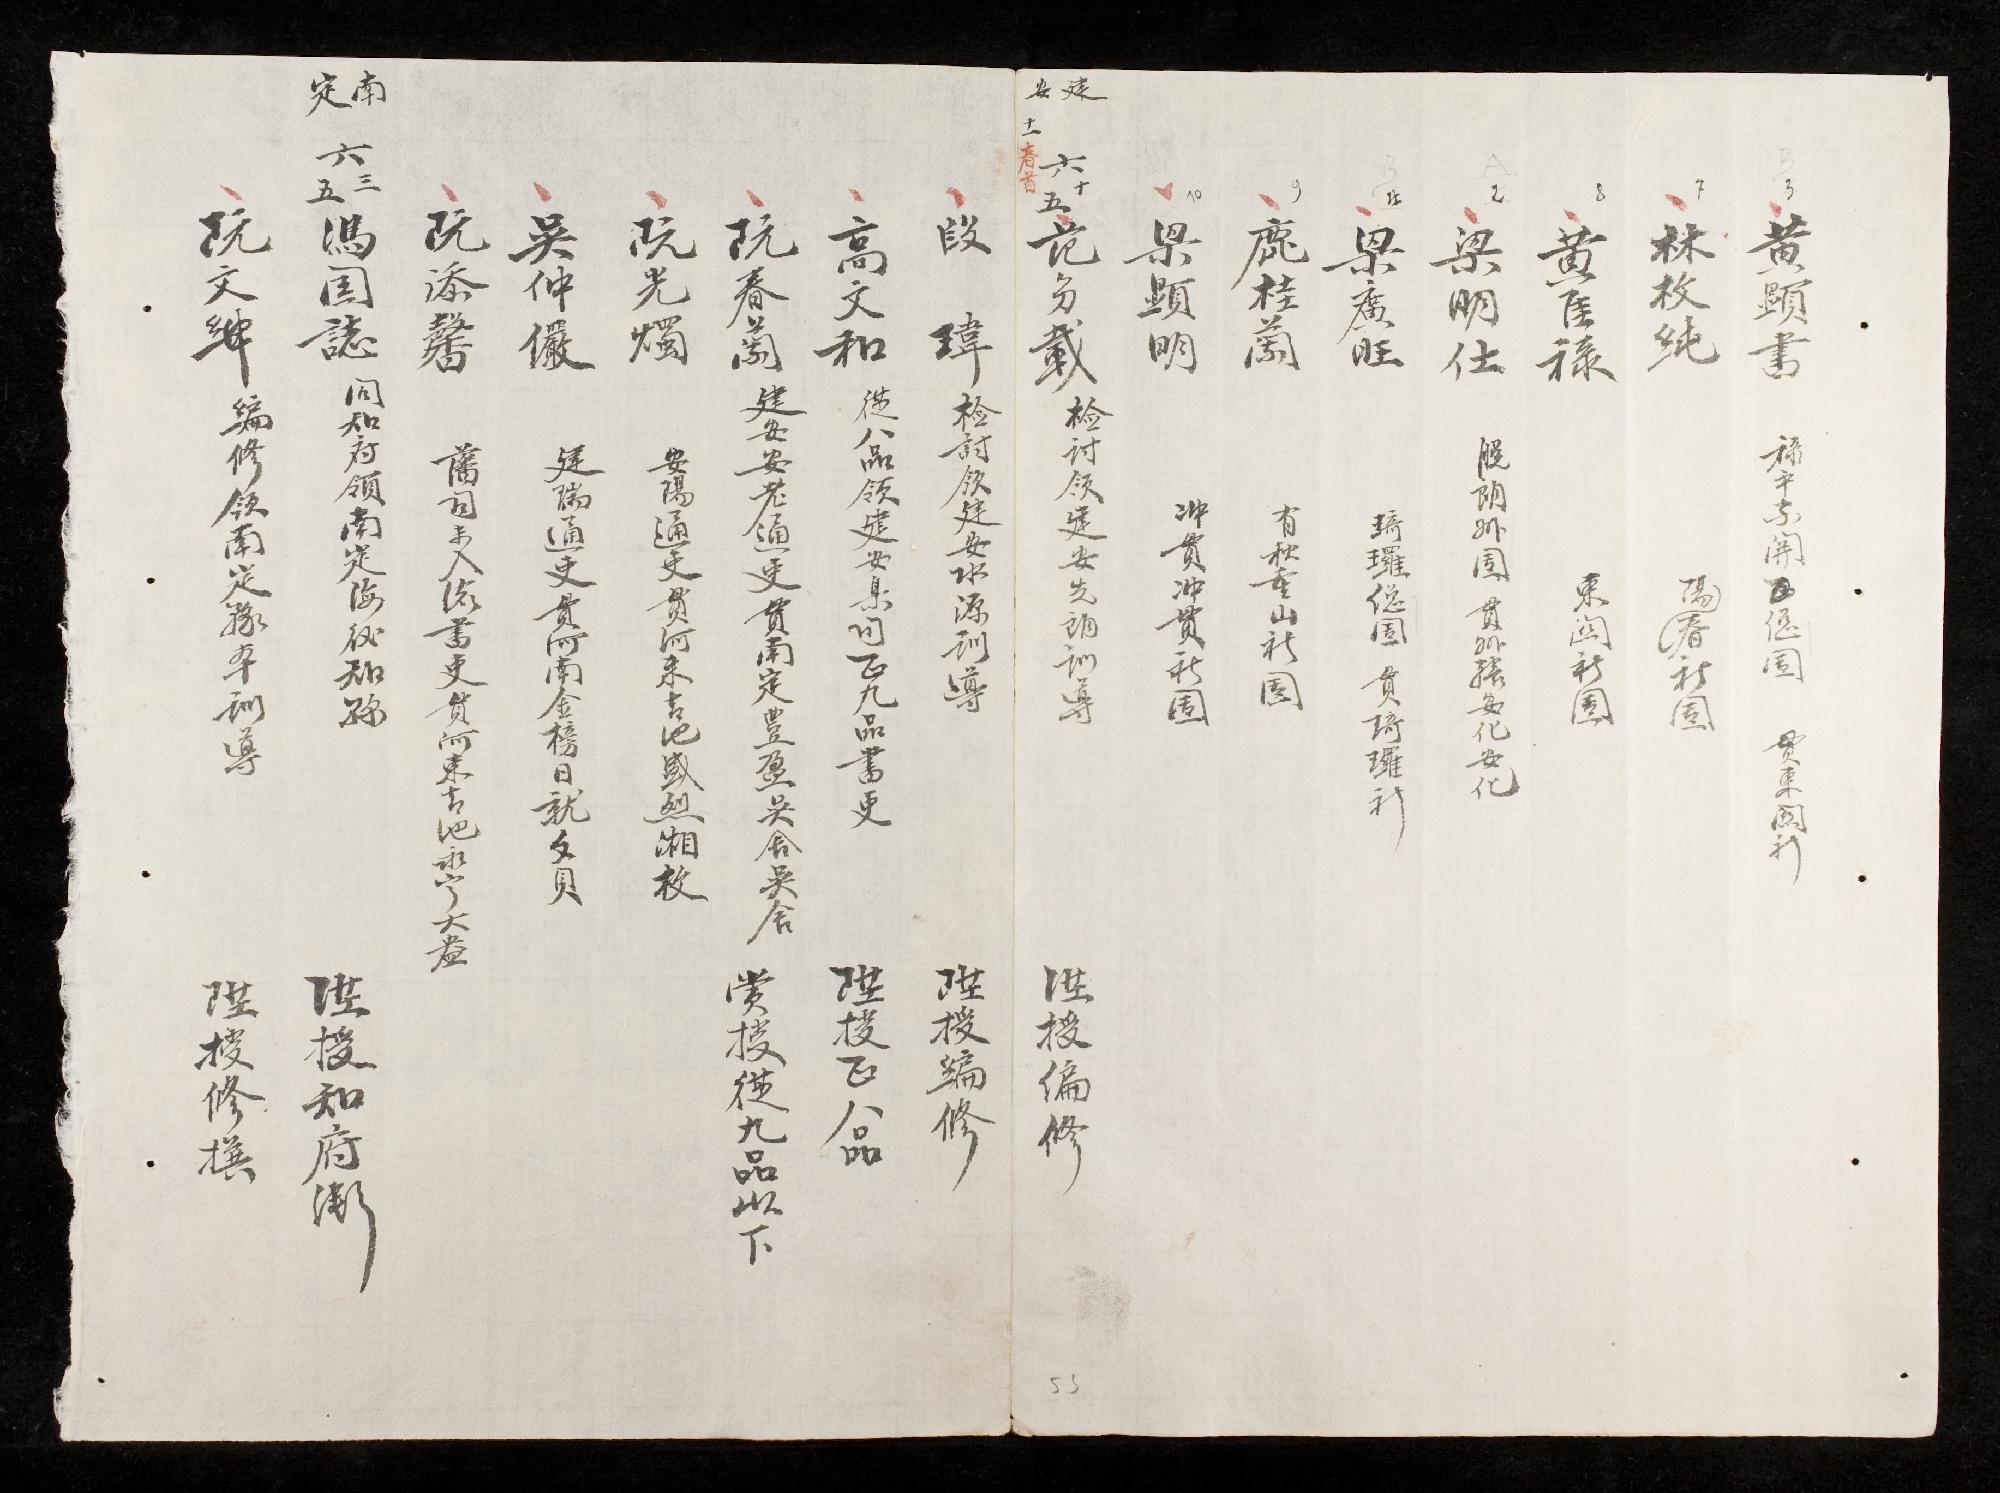 黄顕書 祿平 開 總團 貫東關社
林枚純 陽春社團
黃 祿 東關社團
梁明仕 脫朗外團 貫外 安化安化
梁廣旺 琦㼈總團 貫琦㼈社
鹿桂蘭 有秋重山社團
梁顕明 冲貫冲貫社團
建安
十一
春首
六十五
范多載 檢討領建安先朗訓導 陞授編修
段瑋 檢討領建安 源訓導 陞授編修
高文和 從八品領建安臬司正九品書吏 陞授正八品
阮春蘭 建安安老通吏貫南定豊盈吳舍吳舍 賞授從九品以下
阮光燭 安陽通吏貫河東吉池盛烈湘枚
吳仲儼 建瑞通吏貫河南金榜日就文員
阮添馨 藩司未入流書吏貫河東吉池永寧大
南定
六三五
馮国誌 同知府領南定海後知縣 陞授知府銜
阮文紳 編修領南定務本訓導 陞授修撰
3
7
8
2
9
10
53